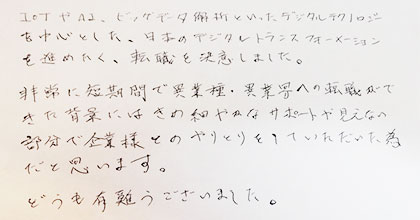 IoTやAI、ビッグデータ解析といったデジタルテクノロジー
を中心とした、日本のデジタルトランスフォーメーション
を進めたく、転職を決意しました。
非常に短期間で異業種・異業界への転職がで
きた背景にはきめ細やかなサポートや見えない
部分で企業様とのやりとりをしていただいた為
だと思います。
どうも有難うございました。